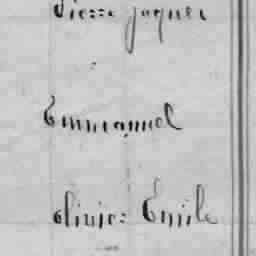 Pierre Jaques
Emmanuel
Olivier Emile